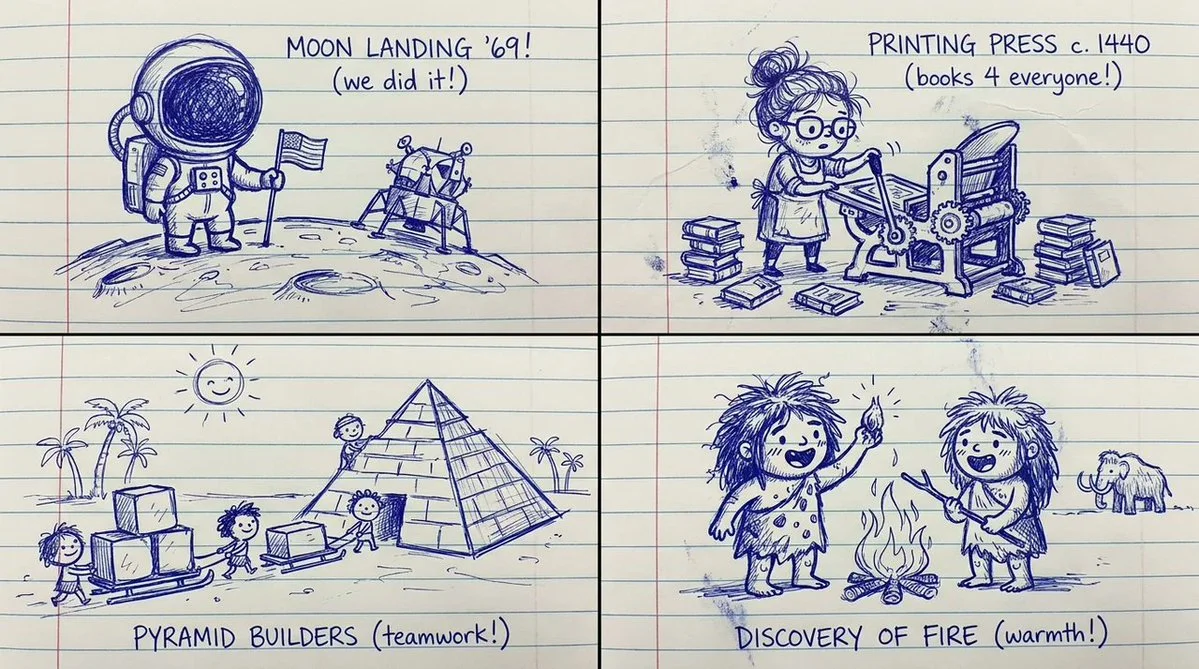 MOON LANDING '69!
(we did it!)
PRINTING PRESS c. 1440
(books 4 everyone!)
PYRAMID BUILDERS (teamwork!)
DISCOVERY OF FIRE (warmth!)